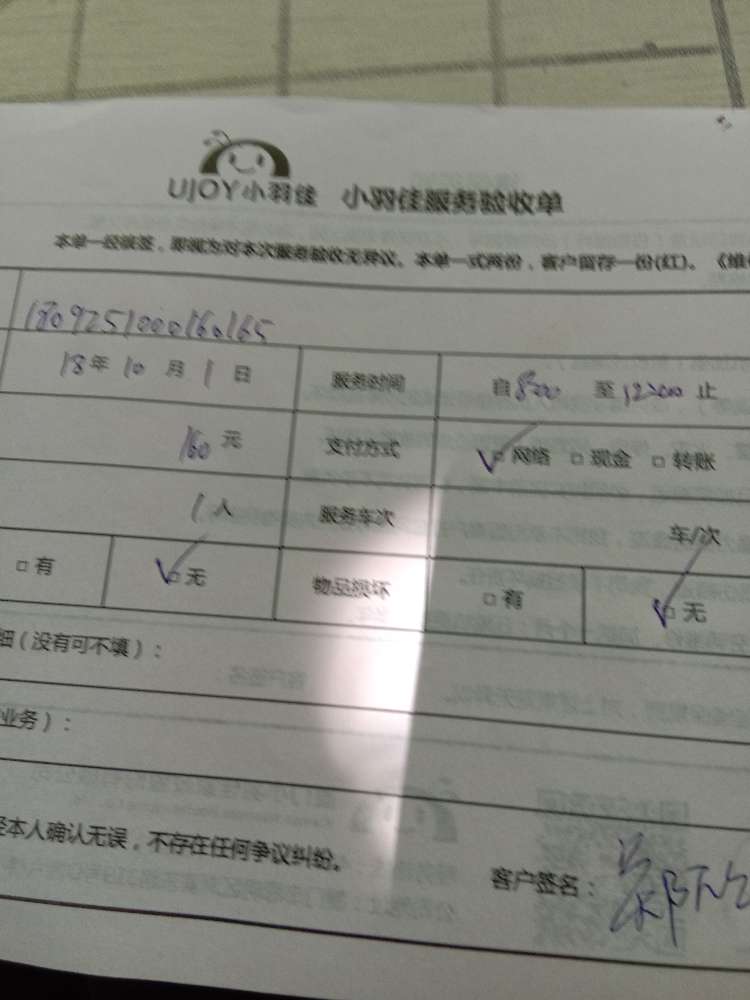 UJOY小羽佳 小羽佳服务验收单
本单一经签,即视为对本次服务验收无异议。本单一式两份,客户留存一份(红)。《维
180925100016​0165
18年 10 月 1 日 服务时间 自8:00 至12:00 止
160 元 支付方式 □网络 □现金 □转账
1 人 服务车次 车/次
□有 □无 物品损坏 □有 □无
细(没有可不填):
业务):
经本人确认无误,不存在任何争议纠纷。
客户签名: